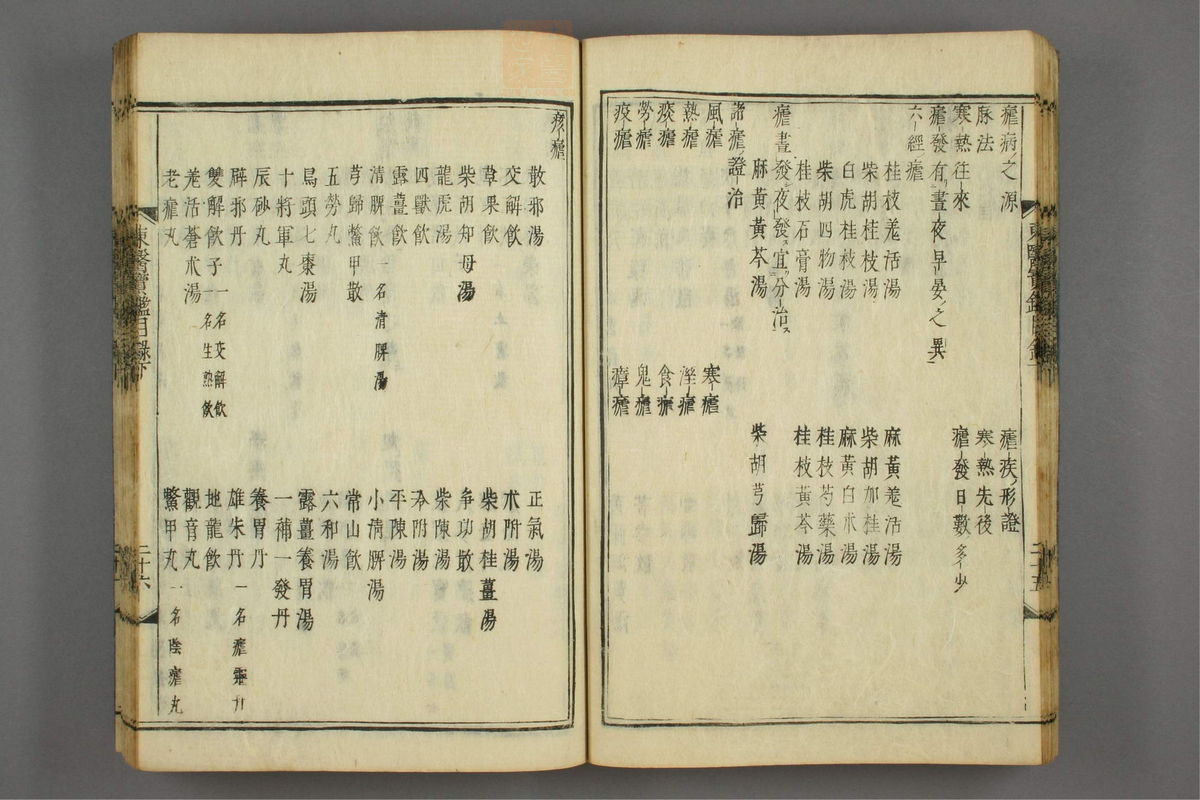 瘧病ノ之源
瘧疾ノ形證
脉法
寒熱先後
寒熱往來
瘧發日數ノ多少
瘧發有晝夜早晏ノ之異
六經瘧
桂枝羌活湯
麻黃羌活湯
柴胡桂枝湯
柴胡加桂湯
白虎桂枝湯
麻黃白朮湯
柴胡四物湯
桂枝芍藥湯
桂枝石膏湯
桂枝黃芩湯
瘧晝發夜發ス宜分治ス
麻黃黃芩湯
柴胡芎歸湯
諸瘧證治
風瘧
寒瘧
熱瘧
濕瘧
痰瘧
食瘧
勞瘧
鬼瘧
疫瘧
瘴瘧
東醫寶鑑目錄下
二十五
痎瘧
散邪湯
正氣湯
交解飲
朮附湯
草果飲
柴胡桂薑湯
柴胡知母湯
爭功散
龍虎湯
柴陳湯
四獸飲
冷附湯
露薑飲
平陳湯
清脾飲一名清脾湯
小清脾湯
芎歸鱉甲散
常山飲
五勞丸
六和湯
烏頭七棗湯
露薑養胃湯
十將軍丸
一補一發丹
辰砂丸
養胃丹
辟邪丹
雄朱丹一名瘧靈丹
雙解飲子一名交解飲
名生熟飲
地龍飲
羌活蒼朮湯
觀音丸
老瘧丸
鱉甲丸一名陰瘧丸
東醫寶鑑目錄下
二十六